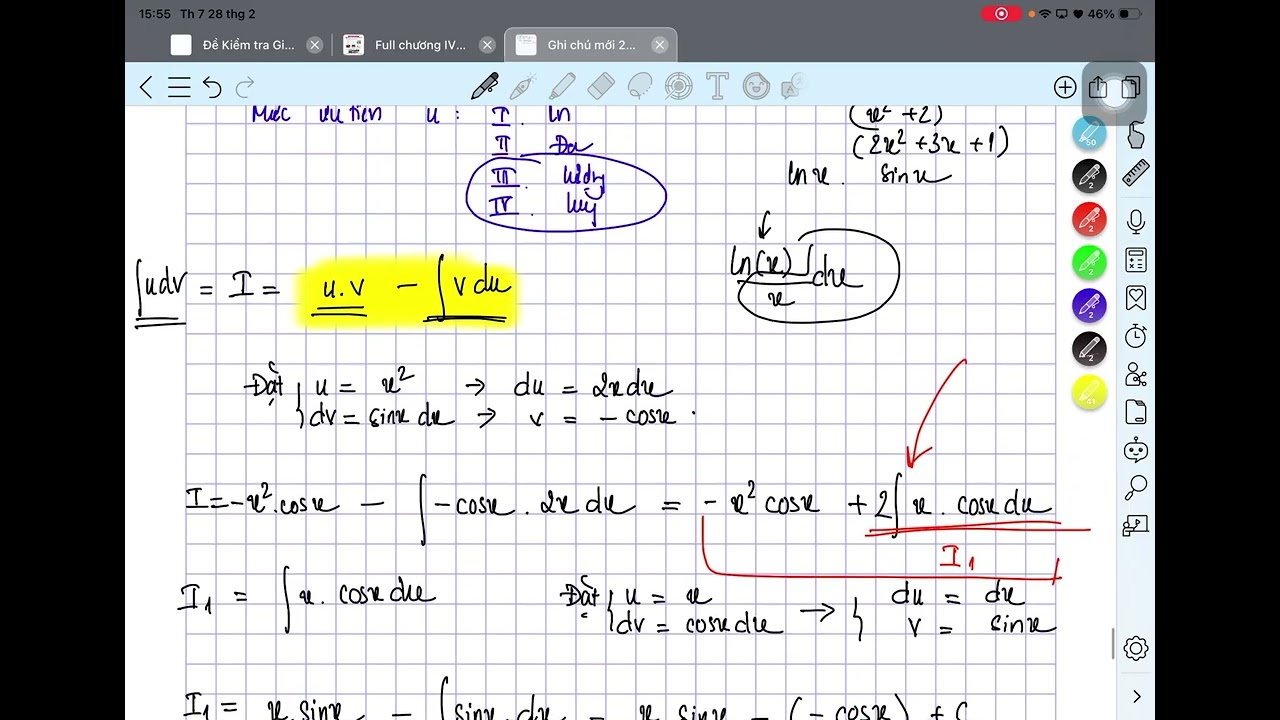 15:55 Th 7 28 thg 2 46%
Đề Kiểm tra Gi... Full chương IV... Ghi chú mới 2...
Mức ưu tiên u : I. ln
II Đa
III. lượng
IV. luỹ
(x² + 2)
(2x² + 3x + 1)
ln x . sin x
ln(x) / x ∫ dx
∫udv = I = u.v - ∫v du
Đặt { u = x² → du = 2xdx
dv = sinx dx → v = - cosx .
I = -x².cosx - ∫-cosx . 2x dx = - x² cosx + 2∫x . cosx dx
I₁
I₁ = ∫x. cosx dx Đặt { u = x → { du = dx
dv = cosx dx v = sinx
I₁ = x.sinx - ∫sinx.dx = x sinx - (-cosx) + C